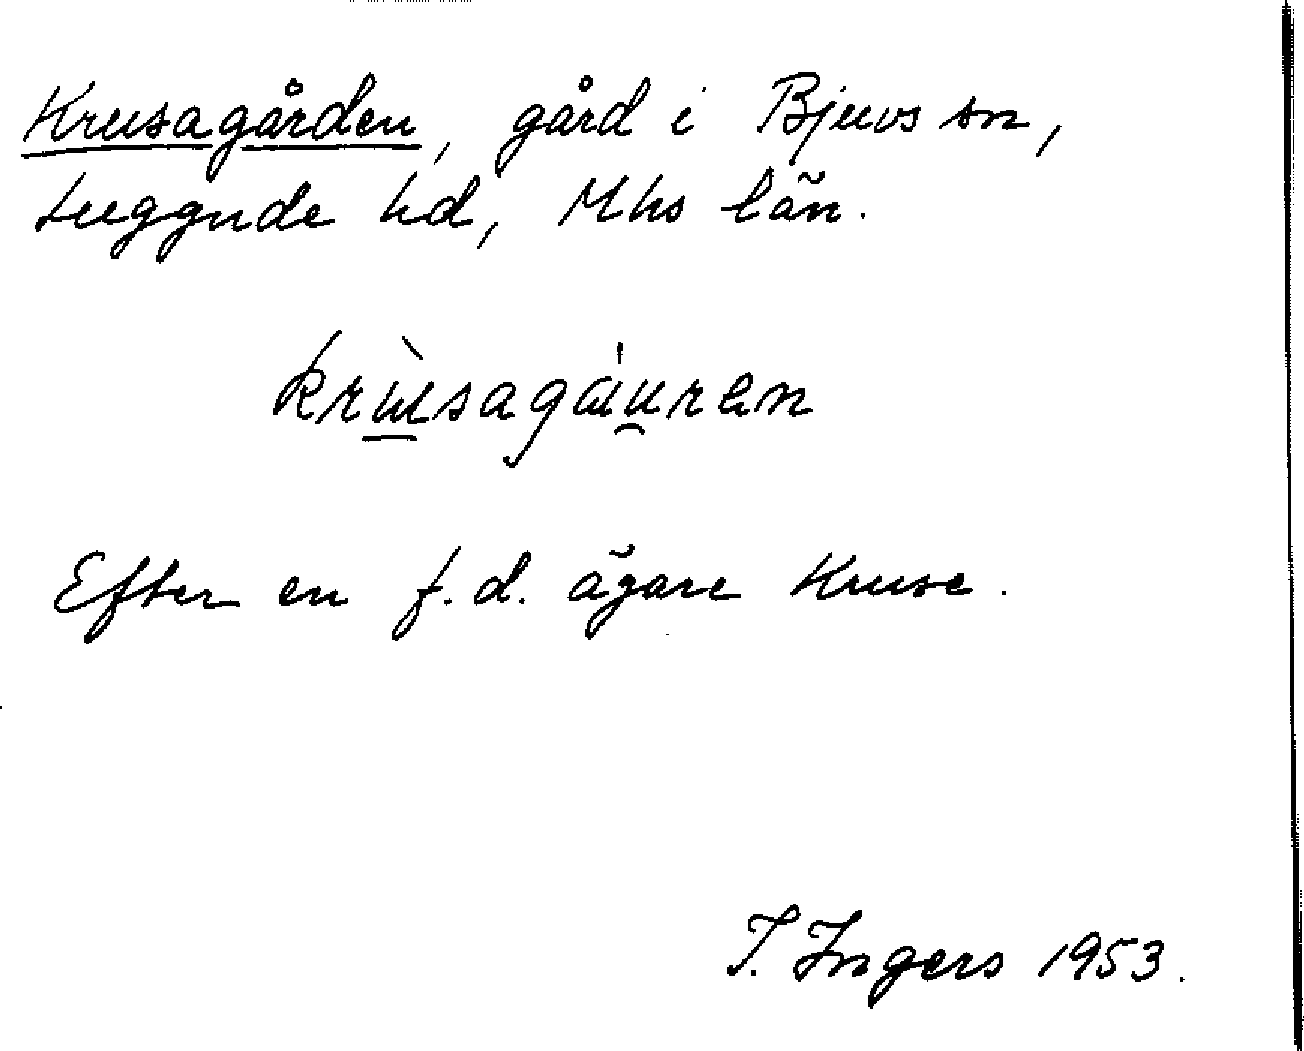 Krusagården, gård i Bjuvs sn,
Luggude hd, Mhs län.
krɯ̀sagáu̯ren
Efter en f.d. ägare Kruse.
I. Ingers 1953.